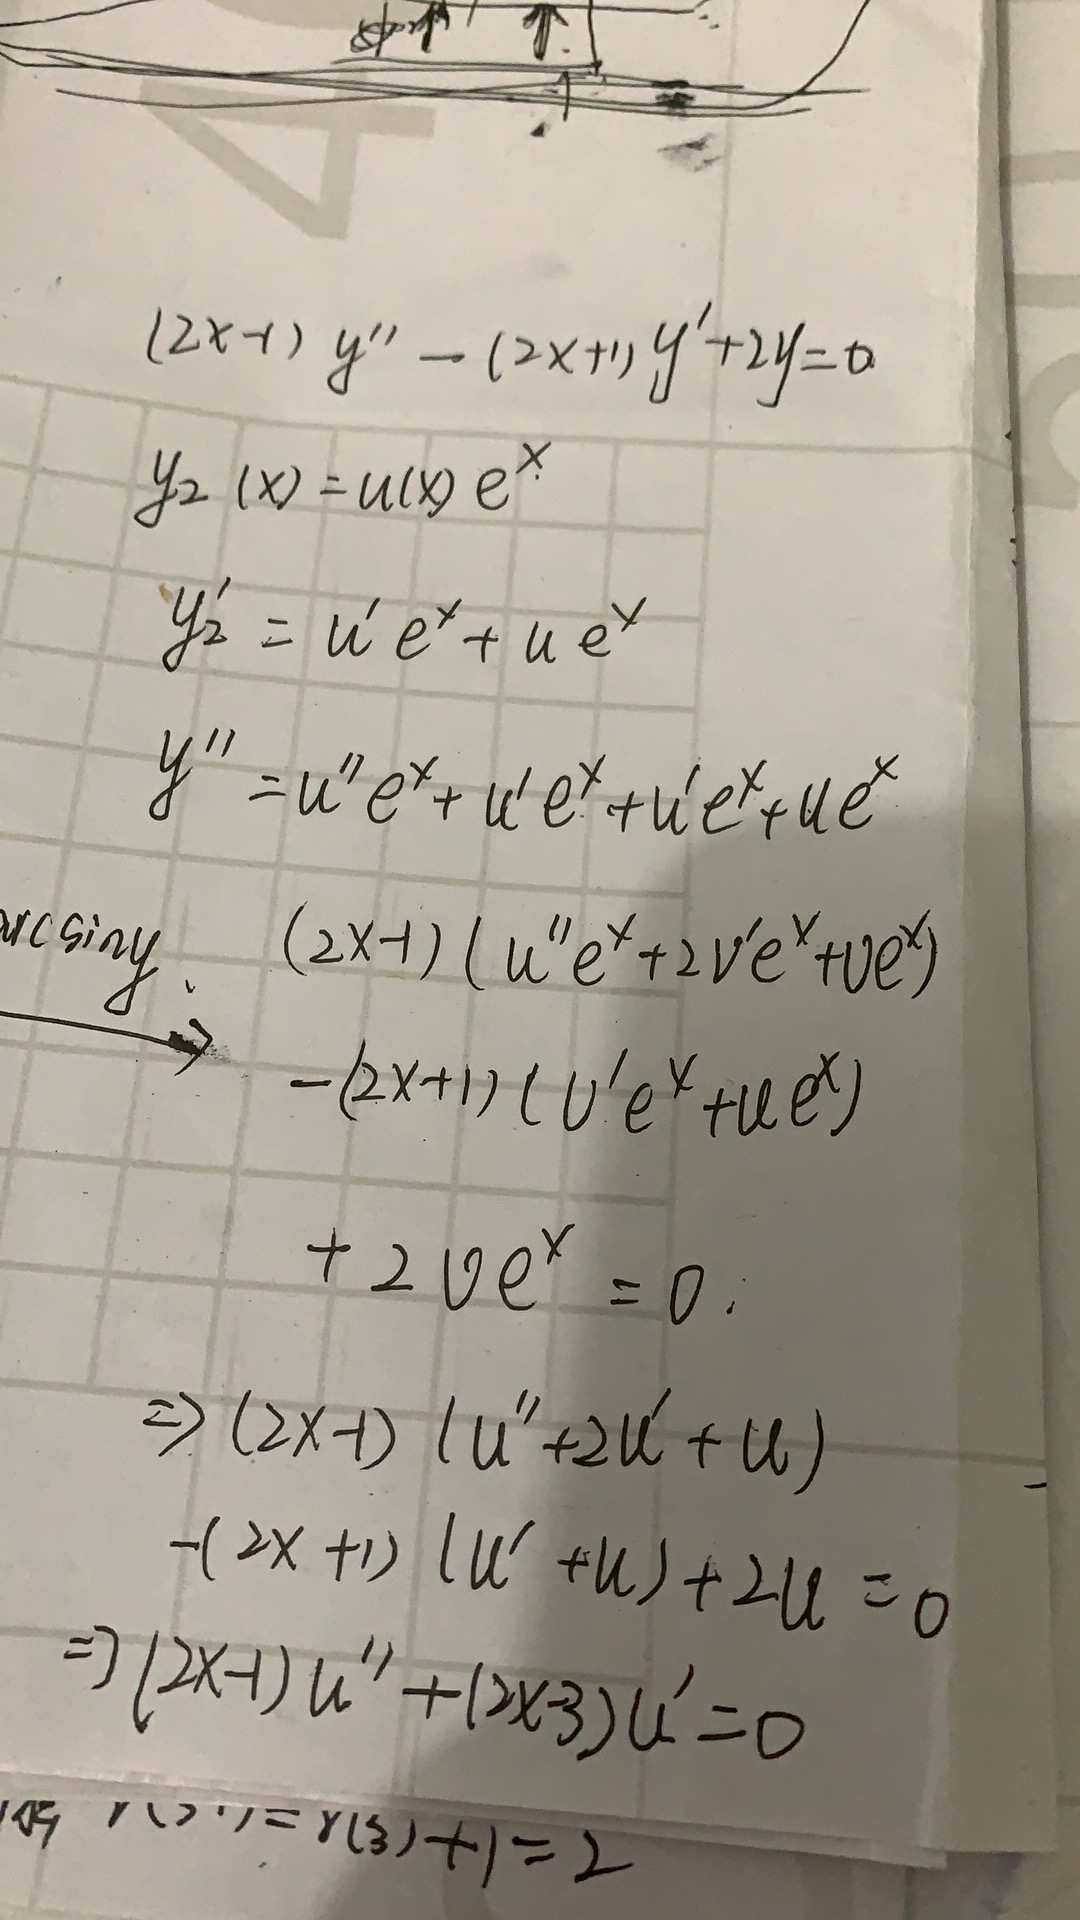 (2x-1) y'' - (2x+1) y' + 2y = 0
y₂(x) = u(x) eˣ
y₂' = u' eˣ + u eˣ
y'' = u'' eˣ + u' eˣ + u' eˣ + u eˣ
arcsiny.
(2x-1) (u'' eˣ + 2u' eˣ + u eˣ)
-(2x+1) (u' eˣ + u eˣ)
+ 2u eˣ = 0.
⇒ (2x-1) (u'' + 2u' + u)
-(2x+1) (u' + u) + 2u = 0
⇒ (2x-1) u'' + (2x-3) u' = 0
= r(3) + 1 = 2